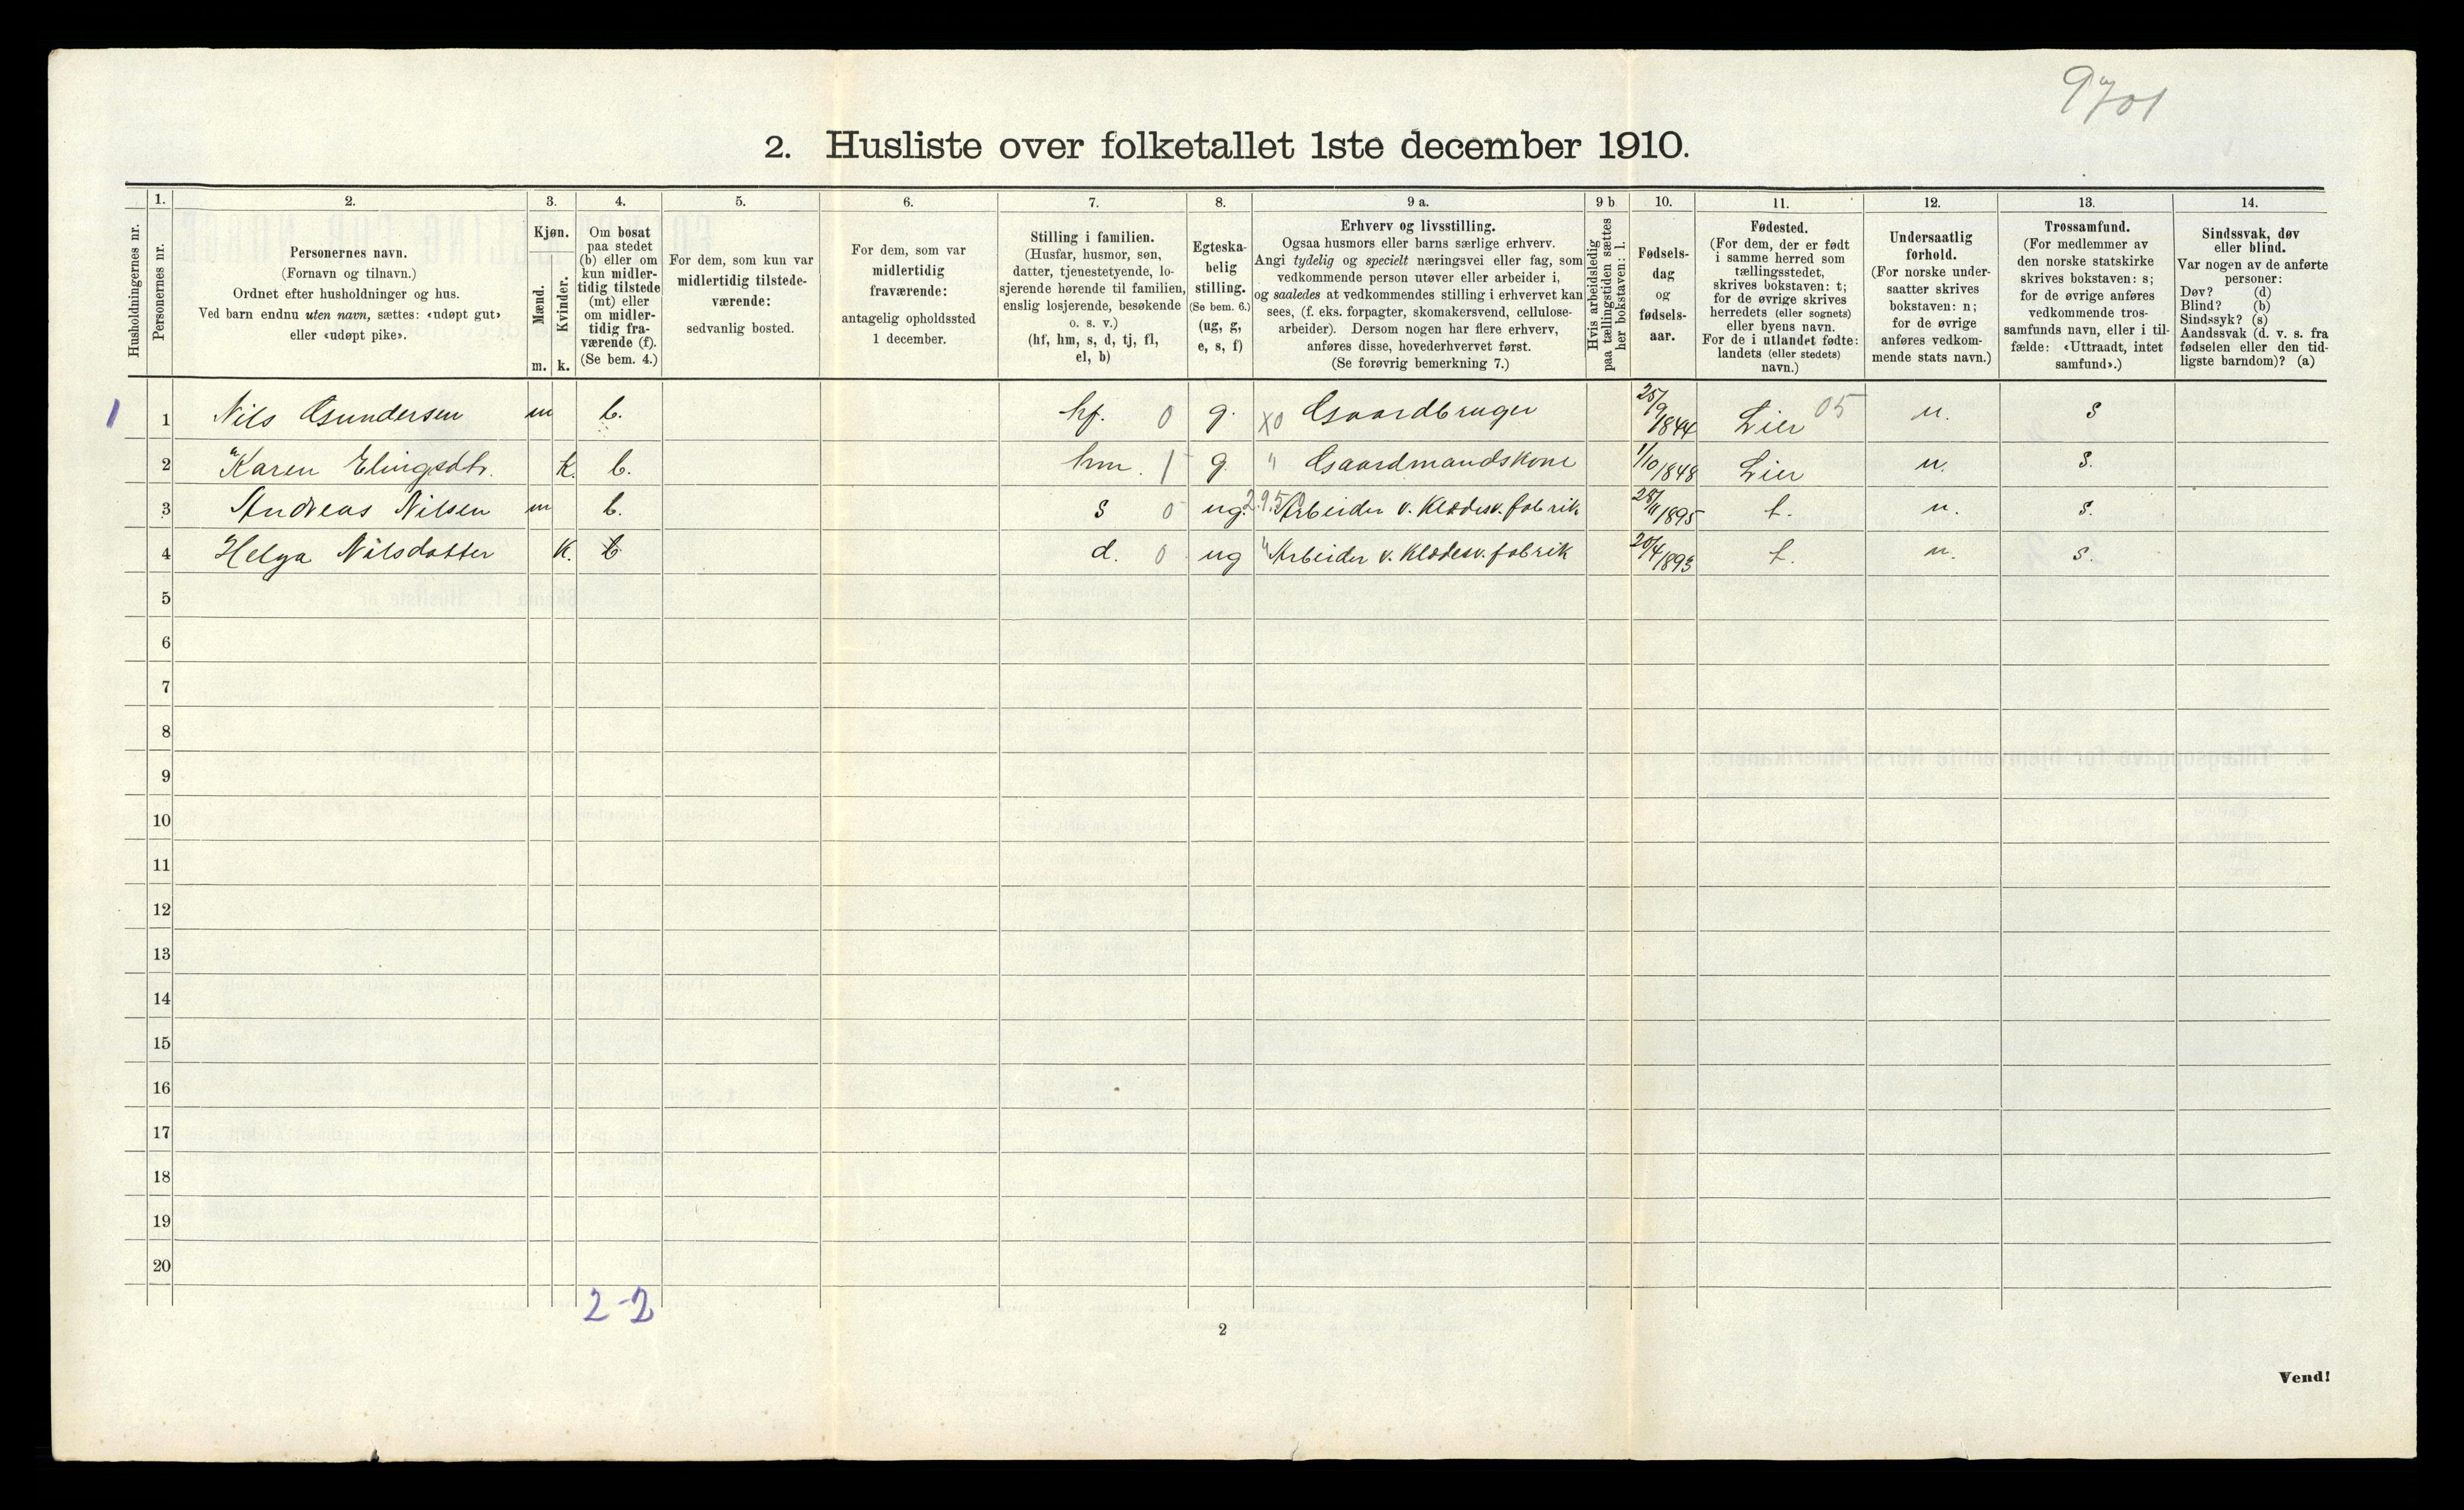 9701
2. Husliste over folketallet 1ste december 1910.
Husholdningernes nr.
1.
Personernes nr.
2.
Personernes navn.
(Fornavn og tilnavn.)
Ordnet efter husholdninger og hus.
Ved barn endnu uten navn, sættes: «udøpt gut»
eller «udøpt pike».
3.
Kjøn.
Mænd.
Kvinder.
m. k.
4.
Om bosat
paa stedet
(b) eller om
kun midler-
tidig tilstede
(mt) eller
om midler-
tidig fra-
værende (f).
(Se bem. 4.)
5.
For dem, som kun var
midlertidig tilstede-
værende:
sedvanlig bosted.
6.
For dem, som var
midlertidig
fraværende:
antagelig opholdssted
1 december.
7.
Stilling i familien.
(Husfar, husmor, søn,
datter, tjenestetyende, lo-
sjerende hørende til familien,
enslig losjerende, besøkende
o. s. v.)
(hf, hm, s, d, tj, fl,
el, b)
8.
Egteska-
belig
stilling.
(Se bem. 6.)
(ug, g,
e, s, f)
9 a.
Erhverv og livsstilling.
Ogsaa husmors eller barns særlige erhverv.
Angi tydelig og specielt næringsvei eller fag, som
vedkommende person utøver eller arbeider i,
og saaledes at vedkommendes stilling i erhvervet kan
sees, (f. eks. forpagter, skomakersvend, cellulose-
arbeider). Dersom nogen har flere erhverv,
anføres disse, hovederhvervet først.
(Se forøvrig bemerkning 7.)
9 b
Hvis arbeidsledig
paa tællingstiden sættes
her bokstaven: l.
10.
Fødsels-
dag
og
fødsels-
aar.
11.
Fødested.
(For dem, der er født
i samme herred som
tællingsstedet,
skrives bokstaven: t;
for de øvrige skrives
herredets (eller sognets)
eller byens navn.
For de i utlandet fødte:
landets (eller stedets)
navn.)
12.
Undersaatlig
forhold.
(For norske under-
saatter skrives
bokstaven: n;
for de øvrige
anføres vedkom-
mende stats navn.)
13.
Trossamfund.
(For medlemmer av
den norske statskirke
skrives bokstaven: s;
for de øvrige anføres
vedkommende tros-
samfunds navn, eller i til-
fælde: «Uttraadt, intet
samfund».)
14.
Sindssvak, døv
eller blind.
Var nogen av de anførte
personer:
Døv? (d)
Blind? (b)
Sindssyk? (s)
Aandssvak (d. v. s. fra
fødselen eller den tid-
ligste barndom)? (a)
1 1 Nils Gundersen m b. hf. 0 g. x0 Gaardbruger 25/9 1844 Lier 05 n. s
2 Karen Elingsdtr. k. b. hm. 1 g. " Gaardmandskone 1/10 1848 Lier n. s.
3 Andreas Nilsen m b. s 0 ug. 2.9.5 Arbeider v. Klædesv. fabrik 28/11 1895 t. n. s.
4 Helga Nilsdatter k. b d. 0 ug " Arbeider v. Klædesv. fabrik 20/4 1893 t. n. s.
5
6
7
8
9
10
11
12
13
14
15
16
17
18
19
20
2-2
2
Vend!